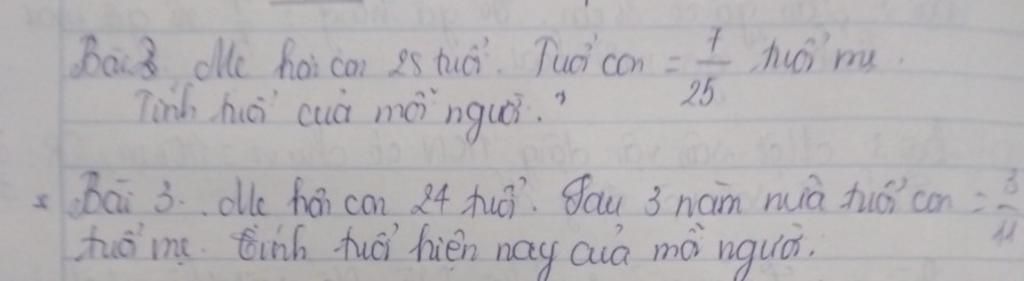 Bài 2. Mẹ hơn con 25 tuổi. Tuổi con = 7/25 tuổi mẹ.
Tính tuổi của mỗi người?
* Bài 3. Mẹ hơn con 24 tuổi. Sau 3 năm nữa tuổi con = 3/11
tuổi mẹ. Tính tuổi hiện nay của mỗi người.